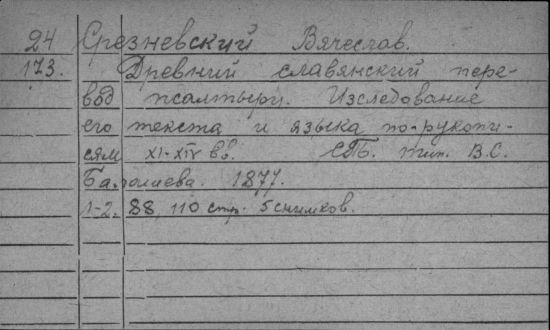 24 Срезневский Вячеслав.
173. Древний славянский пере-
вод псалтыри. Изследование
его текста и языка по рукопи-
сям XI-XIV вв. СПб. тип. В.С.
Балашева. 1877.
1-2. 88, 110 стр. 5 снимков.